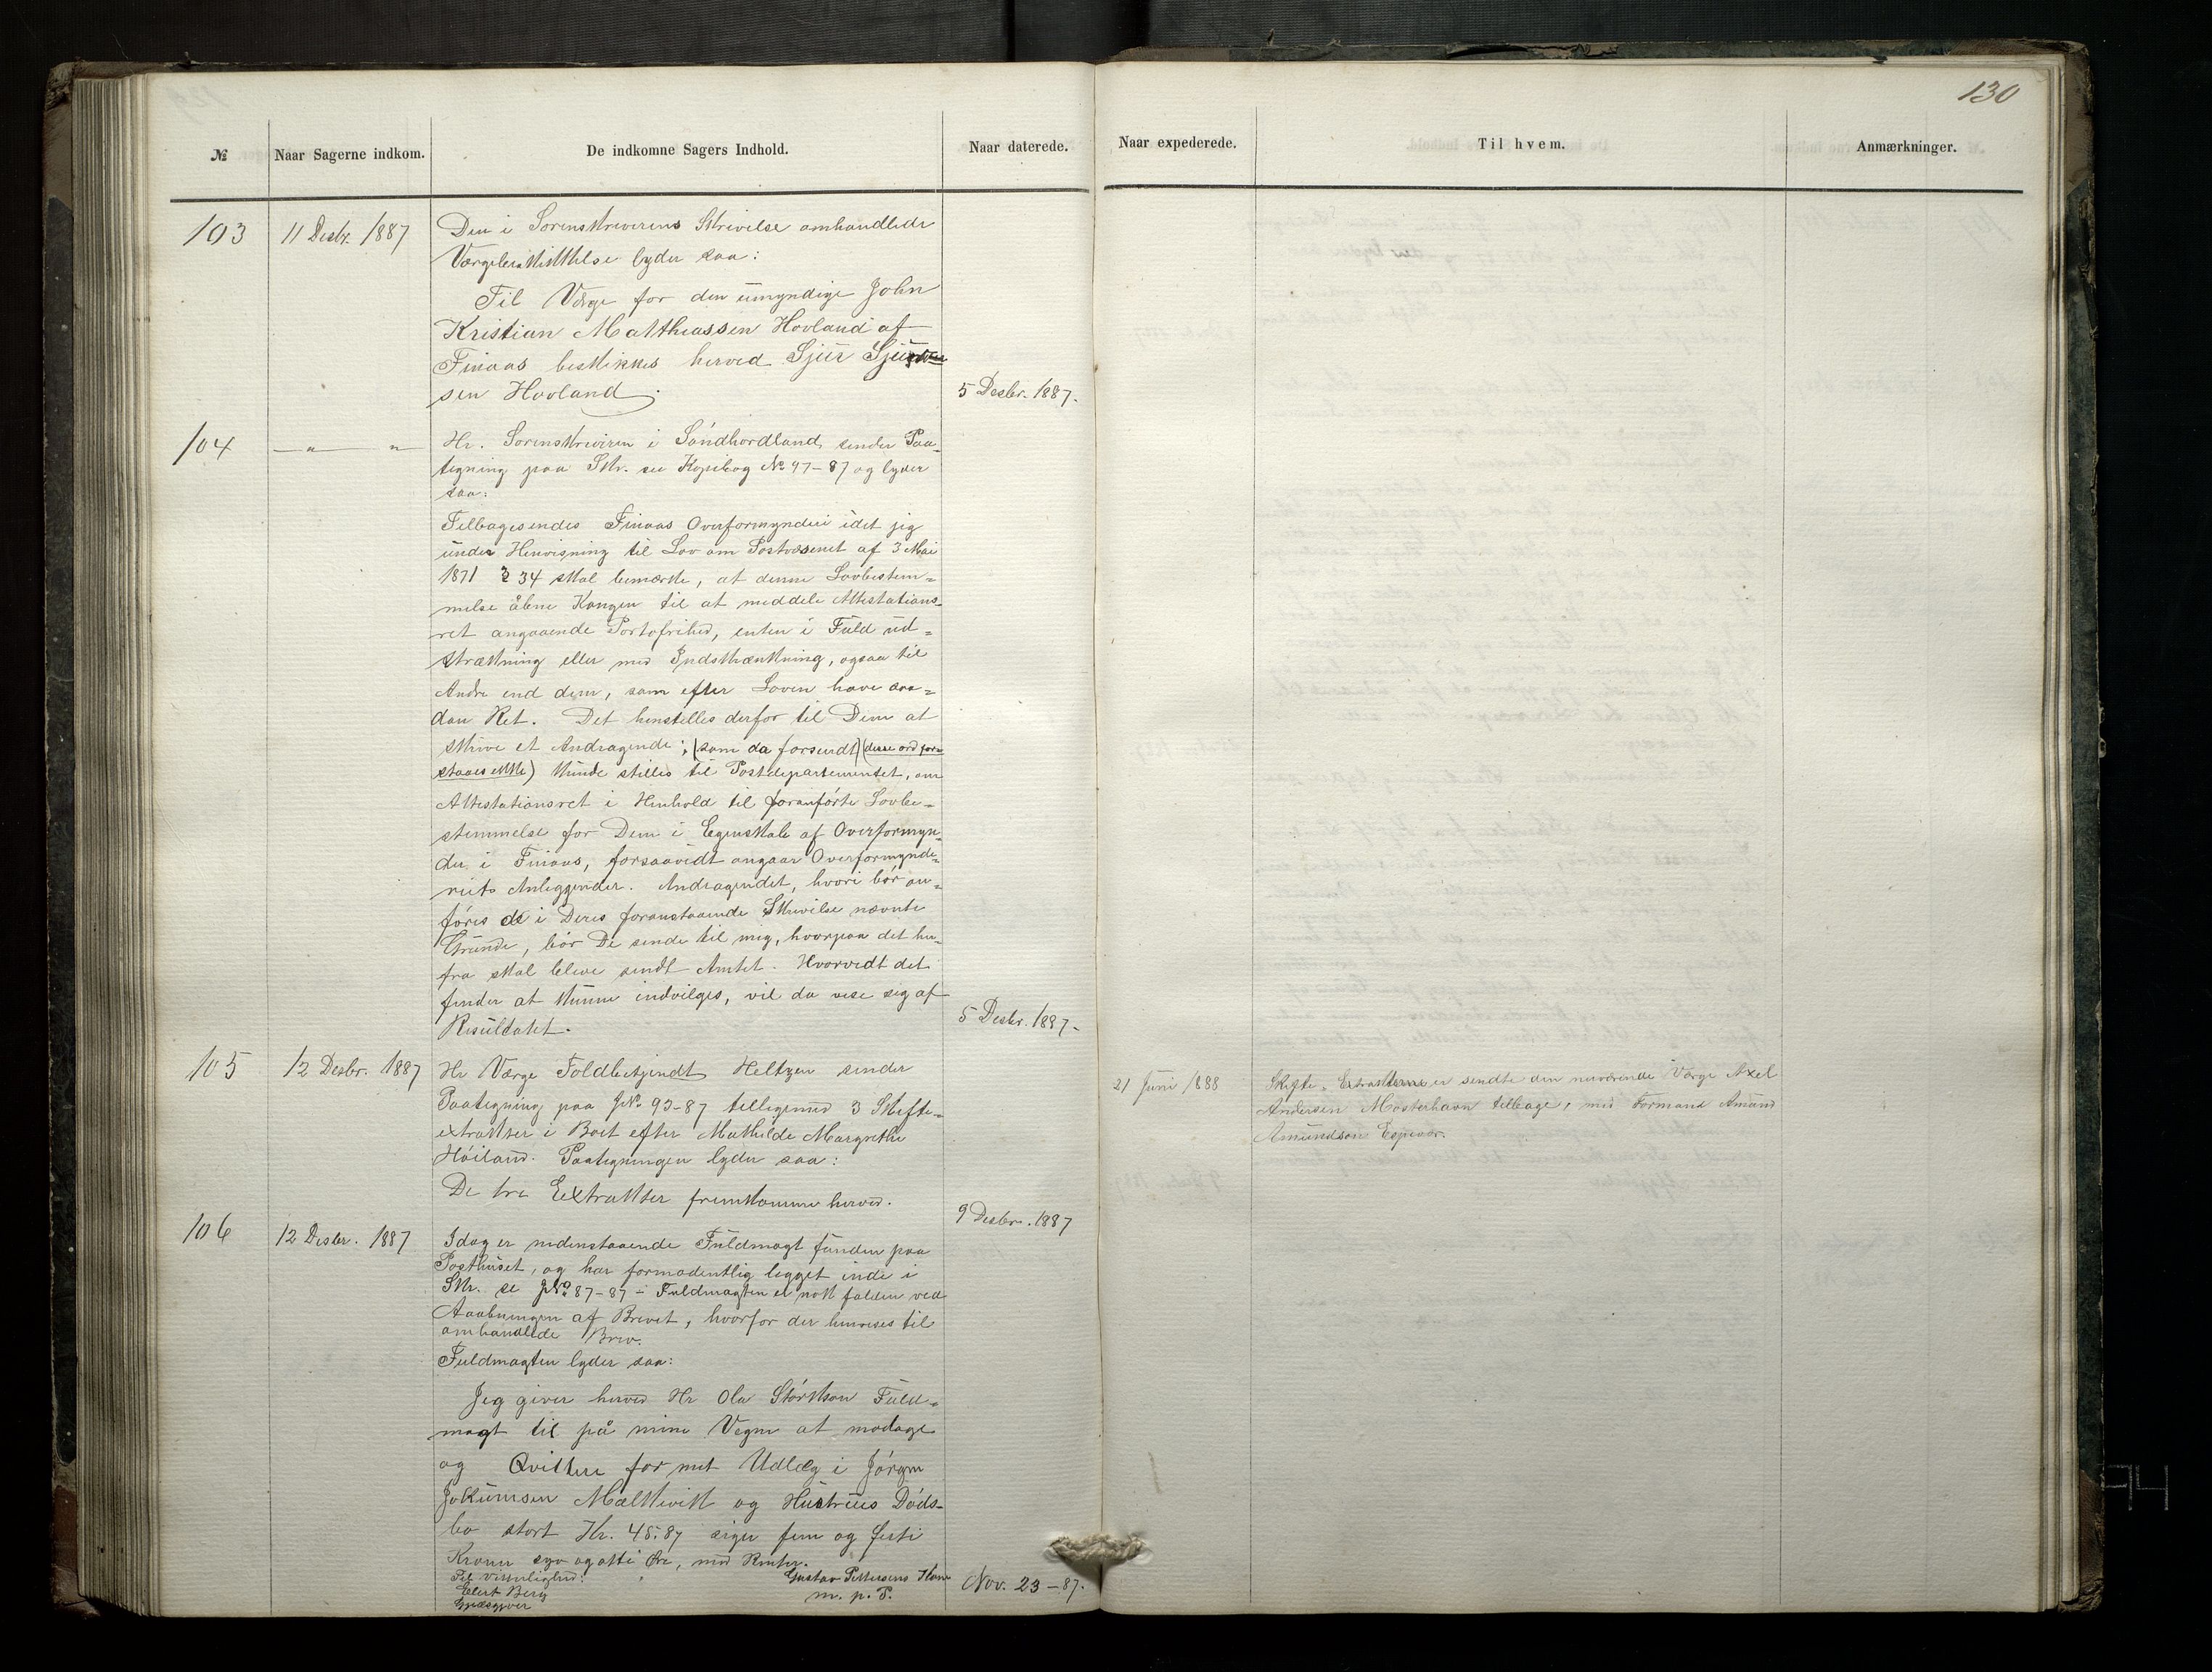 130
№
Naar Sagerne indkom.
De indkomne Sagers Indhold.
Naar daterede.
Naar expederede.
Til hvem.
Anmærkninger.
103
11 Desbr. 1887
Den i Sorenskriverens Skrivelse omhandlede
Værgebeskikkelse lyder saa:
Til Værge for den umyndige John
Kristian Matthiassen Hovland af
Finaas beskikkes herved Sjur Sjur
sen Hovland.
5 Desbr. 1887.
104
— " — "
Hr. Sorenskriveren i Söndhordland, sender Paa-
tegning paa Skr. se Kopibog № 97-87 og lyder
saa:
Tilbagesendes Finaas Overformynderi idet jeg
under Henvisning til Lov om Postvæsenet af 3 Mai
1871 § 34 skal bemærke, at denne Lovbestem=
melse åbne Kongen til at meddele Attestations-
ret angaaende Portofrihed, enten i Fuld ud=
strækning eller med Indskrænkning, ogsaa til
Andre end dem, som efter Loven have saa=
dan Ret. Det henstilles derfor til Dem at
skrive et Andragende; (som da forsendt) (disse ord for-
staaes ikke) kunde stilles til Postdepartementet, om
Attestationsret i Henhold til foranförte Lovbe=
stemmelse for Dem i Egenskab af Overformyn-
der i Finaas, forsaavidt angaar Overformynde-
riets Anliggender. Andragendet, hvori bör an-
föres de i Deres foranstaaende Skrivelse nævnte
Grunde, bör De sende til mig, hvorpaa det her-
fra skal blive sendt Amtet. Hvorvidt det
finder at kunne indvilges, vil da vise sig af
Resultatet.
5 Desbr. 1887.
105
12 Desbr. 1887
Hr Værge Toldbetjendt Heltzen sender
Paategning paa J№ 93-87 tilligemed 3 Skifte=
extrakter i Boet efter Mathilde Margrethe
Höiland. Paategningen lyder saa:
De tre Extrakter fremkomme herved.
9 Desbr. 1887
21 Juni 1888
Skifte-Extrakterne er sendte den nuværende Værge Axel
Andersen Mosterhavn tilbage, med Formand Amund
Amundson Espevær.
106
12 Desbr. 1887
Idag er nedenstaaende Fuldmagt funden paa
Posthuset, og har formodentlig ligget inde i
Skr. se J№ 87-87 - Fuldmagten er nok falden ved
Aaabningen af Brevet, hvorfor der henvises til
omhandlede Brev.
Fuldmagten lyder saa:
Jeg giver herved Hr Ola Störkson Fuld=
magt til på mine Vegne at modage
og Qvittere for mit Udlæg i Jörgen
Jokumsen Mælkevik og Hustrues Döds-
bo stort Kr. 45.87 siger fem og førti
Kroner syv og otti Øre, med Renter.
Til vitterlighed:
Gustav Pettersens Kone
Elert Berg
m. p. P.
Gjæsgiver
Nov. 23 - 87.